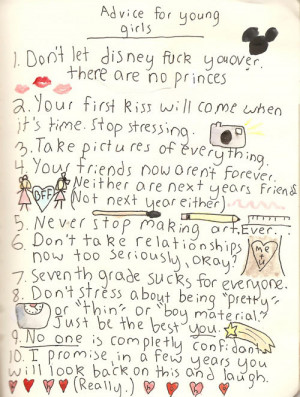 Advice for young
girls
1. Don't let disney fuck you over.
there are no princes
2. Your first kiss will come when
it's time. Stop stressing.
3. Take pictures of everything.
4. Your friends now aren't forever.
Neither are next years friends
(Not next year either)
BFF
5. Never stop making art. Ever.
6. Don't take relationships
now too seriously, okay?
7. Seventh grade sucks for everyone.
8. Don't stress about being "pretty"
or "thin" or "boy material."
Just be the best you.
9. No one is completly confidant
10. I promise, in a few years you
will look back on this and laugh.
(Really..)